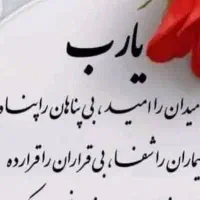 یارب
میدان را امید، بی پناهان را پناه
یماران را شفا، بی قراران را قرار ده